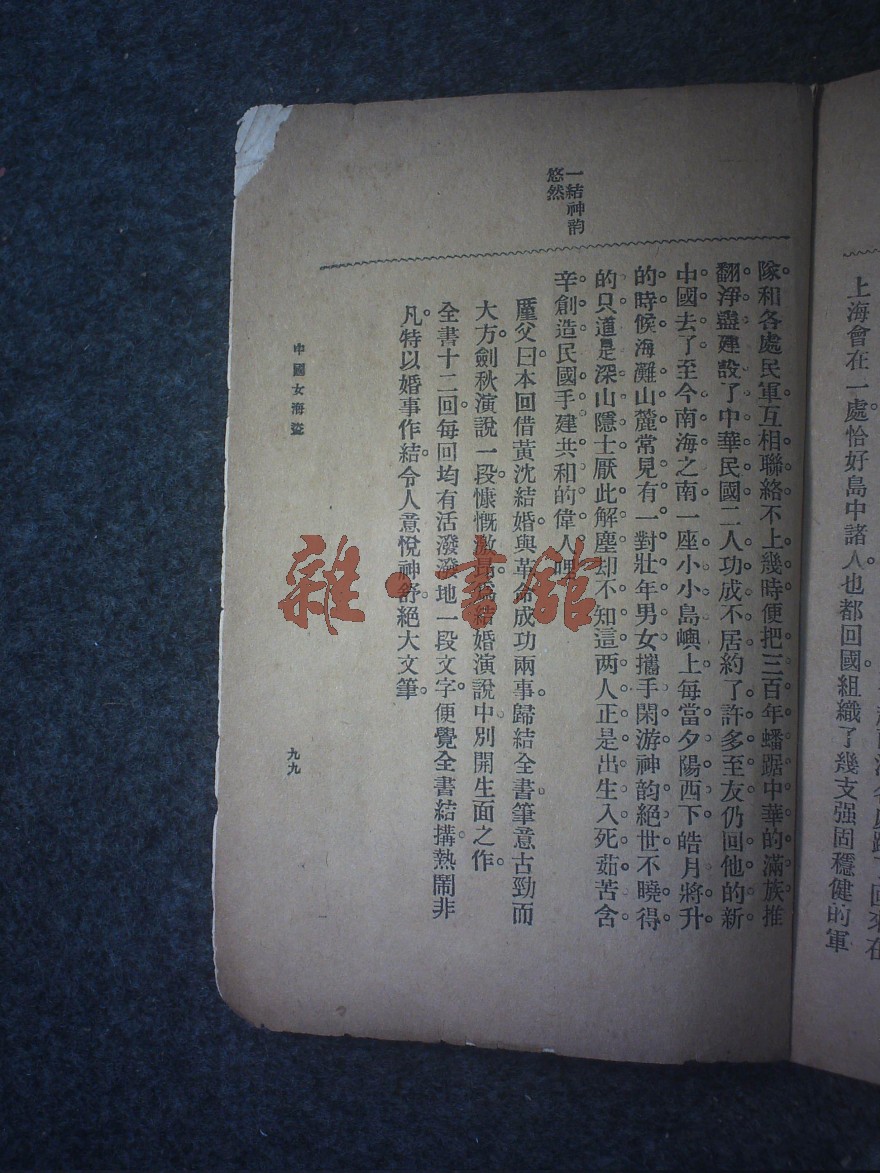 上海會在一處恰好島中諸人也都回國組織了幾支强固穩健的軍
一結神韵
悠然
隊和各處民軍互相聯絡不上幾時便把三百年蟠踞中華的滿族推
翻淨盡建設了中華民國二人功成不居約了許多至友仍回他的新
中國去了至今南海之南一座小小島嶼上每當夕陽西下皓月將升
的時候海灘山麓常見有一對壯年男女攜手閑游神韵絕世不曉得
的只道是深山隱士厭此解塵却不知這两人正是出生入死茹苦含
辛創造民國手建共和的偉人哩
厪父曰本回借黃沈結婚與革命成功兩事歸結全書筆意古勁而
大方劍秋演說一段慷慨激昂爲結婚演說中別開生面之作
全書十二回每回均有活潑潑地一段文字便覺全書結搆熱鬧非
凡特以婚事作結令人意悅神舒絕大文筆
中國女海盜
九九
雜·書館